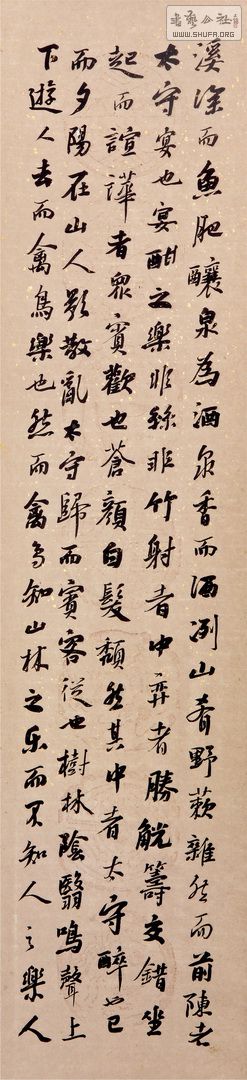 書藝公社
WWW.SHUFA.ORG
溪深而魚肥釀泉為酒泉香而酒冽山肴野蔌雜然而前陳者
太守宴也宴酣之樂非絲非竹射者中弈者勝觥籌交錯坐
起而諠譁者眾賓歡也蒼顏白髮頹然其中者太守醉也已
而夕陽在山人影散亂太守歸而賓客從也樹林陰翳鳴聲上
下遊人去而禽鳥樂也然而禽鳥知山林之乐而不知人之樂人